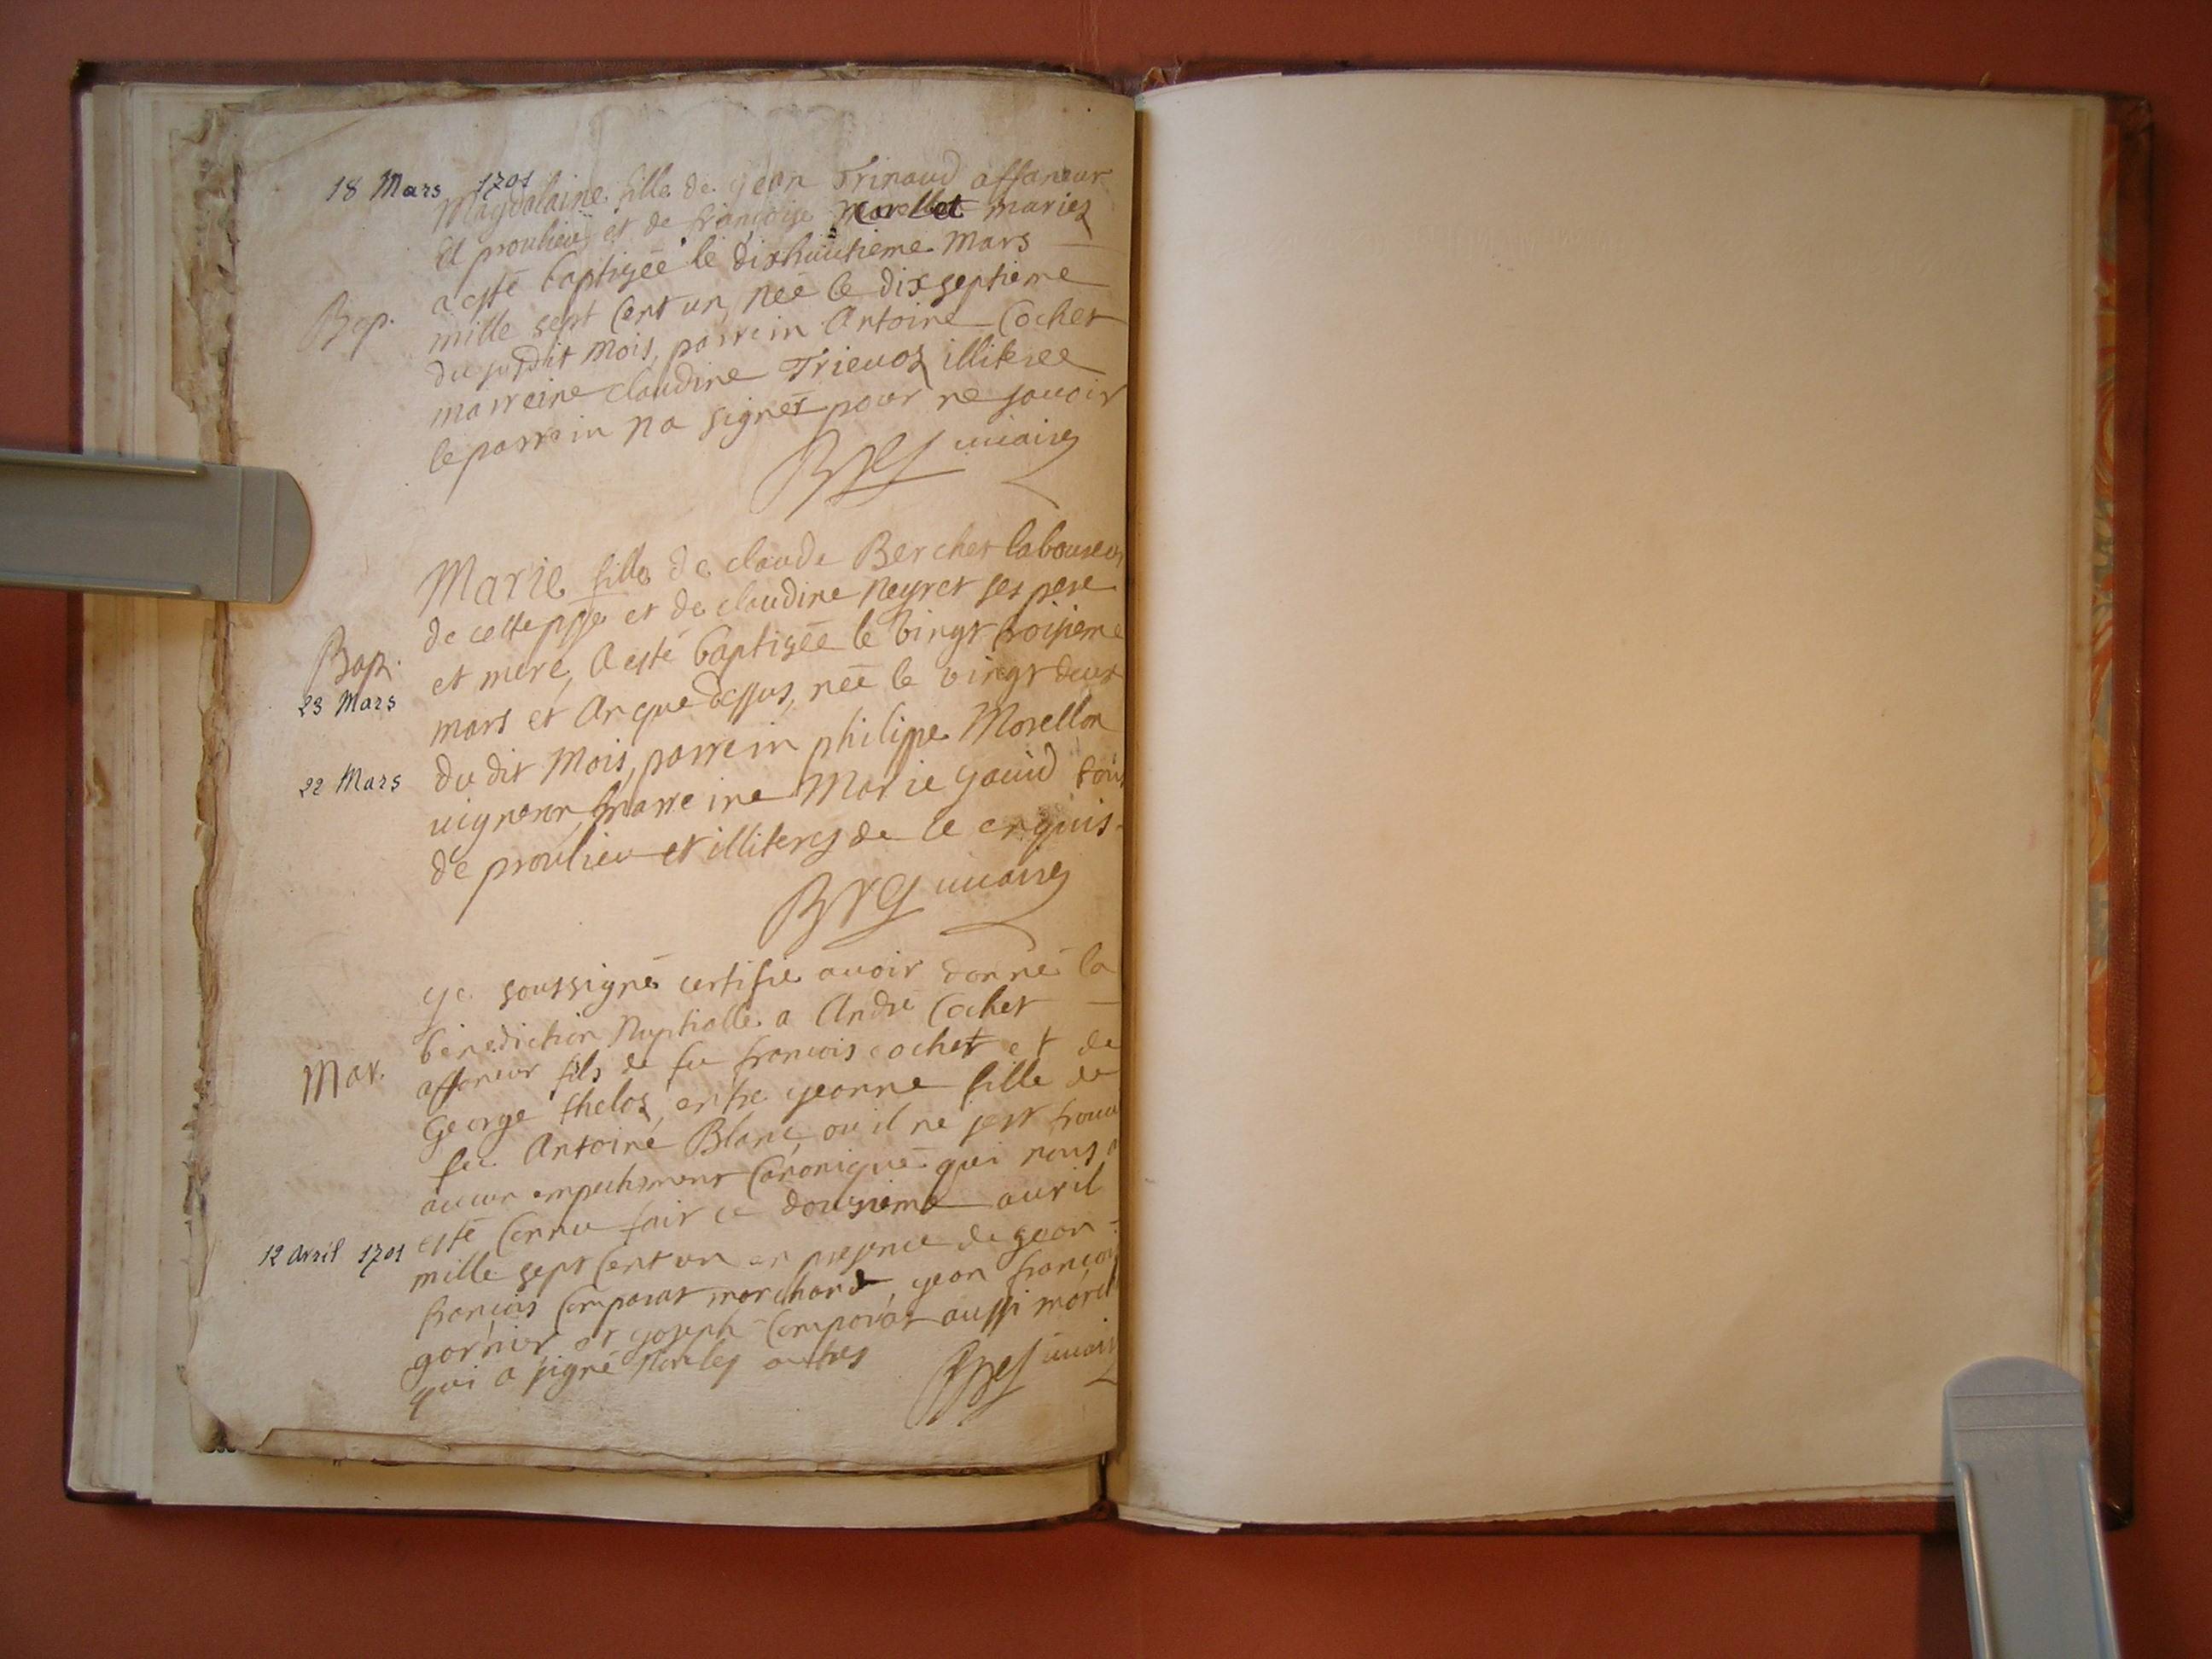 18 Mars 1701
Magdalaine fille de jean Trinaud affaneur
a proulieu et de françoise Morellet mariez
a esté baptizée le dixhuitieme Mars
Bap.
mille sept cent un, née le dixseptieme
du susdit mois, parrein Antoine Cochet
marreine claudine Trievoz illiteree
le parrein na signer pour ne sauoir
Bres uicaire
Marie fille de claude Berchet laboureur
de cette psse et de claudine Neyret ses pere
et mere, a esté baptizée le vingt troisieme
Bap.
23 Mars
mars et an que dessus, née le vingt deux
22 Mars
du dit Mois, parrein philippe Morellon
uigneron, marreine Marie jauid tous
de proulieu et illiteres de ce enquis
Bres uicaire
je soussigné certifie auoir donné la
bénédiction Nuptialle a André Cochet
affaneur fils de fu francois cochet et de
Mar.
George theloz, entre jeanne fille de
feu Antoine Blanc, ou il ne sest trouué
aucun empechement Canonique qui nous a
esté Connu fait ce douzieme auril
12 Avril 1701
mille sept cent un en presence de jean
francois Comparat marchand, jean françois
garnier et joseph Comparat aussi march
qui a signé non les autres
Bres uicaire